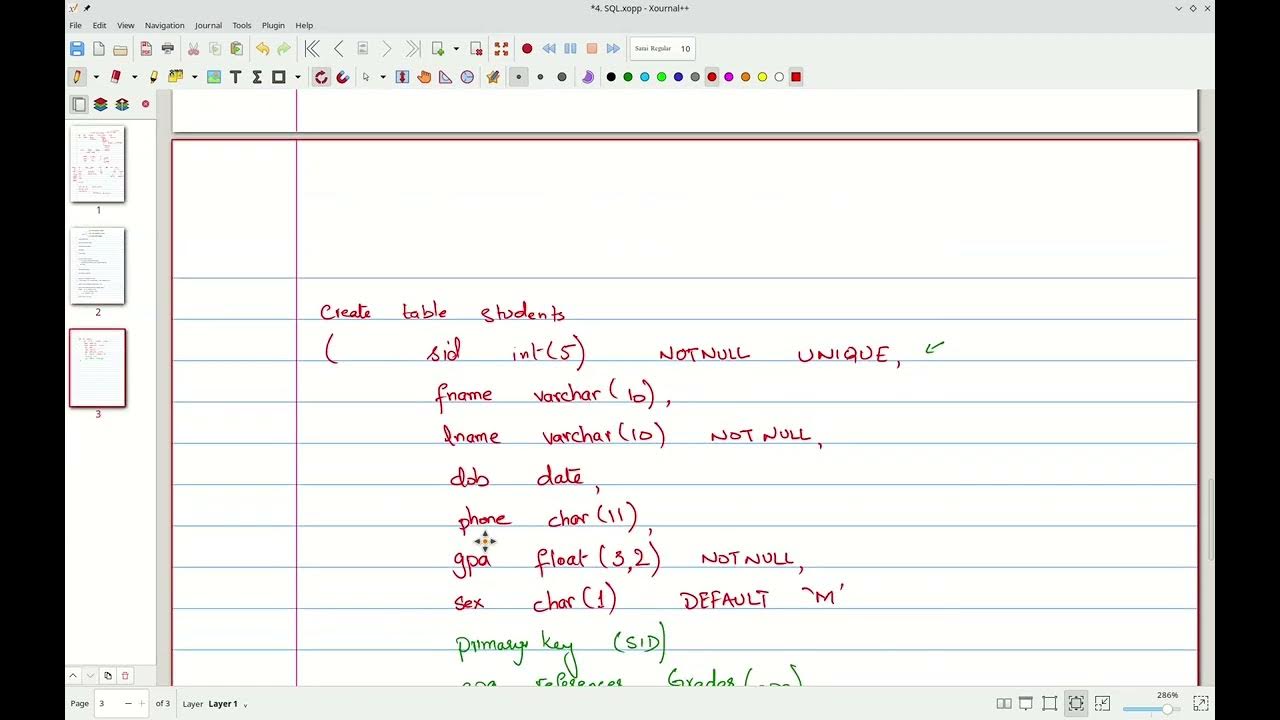 *4. SQL.xopp - Xournal++
File Edit View Navigation Journal Tools Plugin Help
Sarai Regular 10
1
2
3
Create table students
( sid int(5) NOTNULL UNIQUE,
fname varchar(10),
lname varchar(10) NOT NULL,
dob date,
phone char(11),
gpa float(3,2) NOTNULL,
sex char(1) DEFAULT 'M'
primary key (SID)
references Grades(
Page 3 of 3 Layer Layer 1 286%